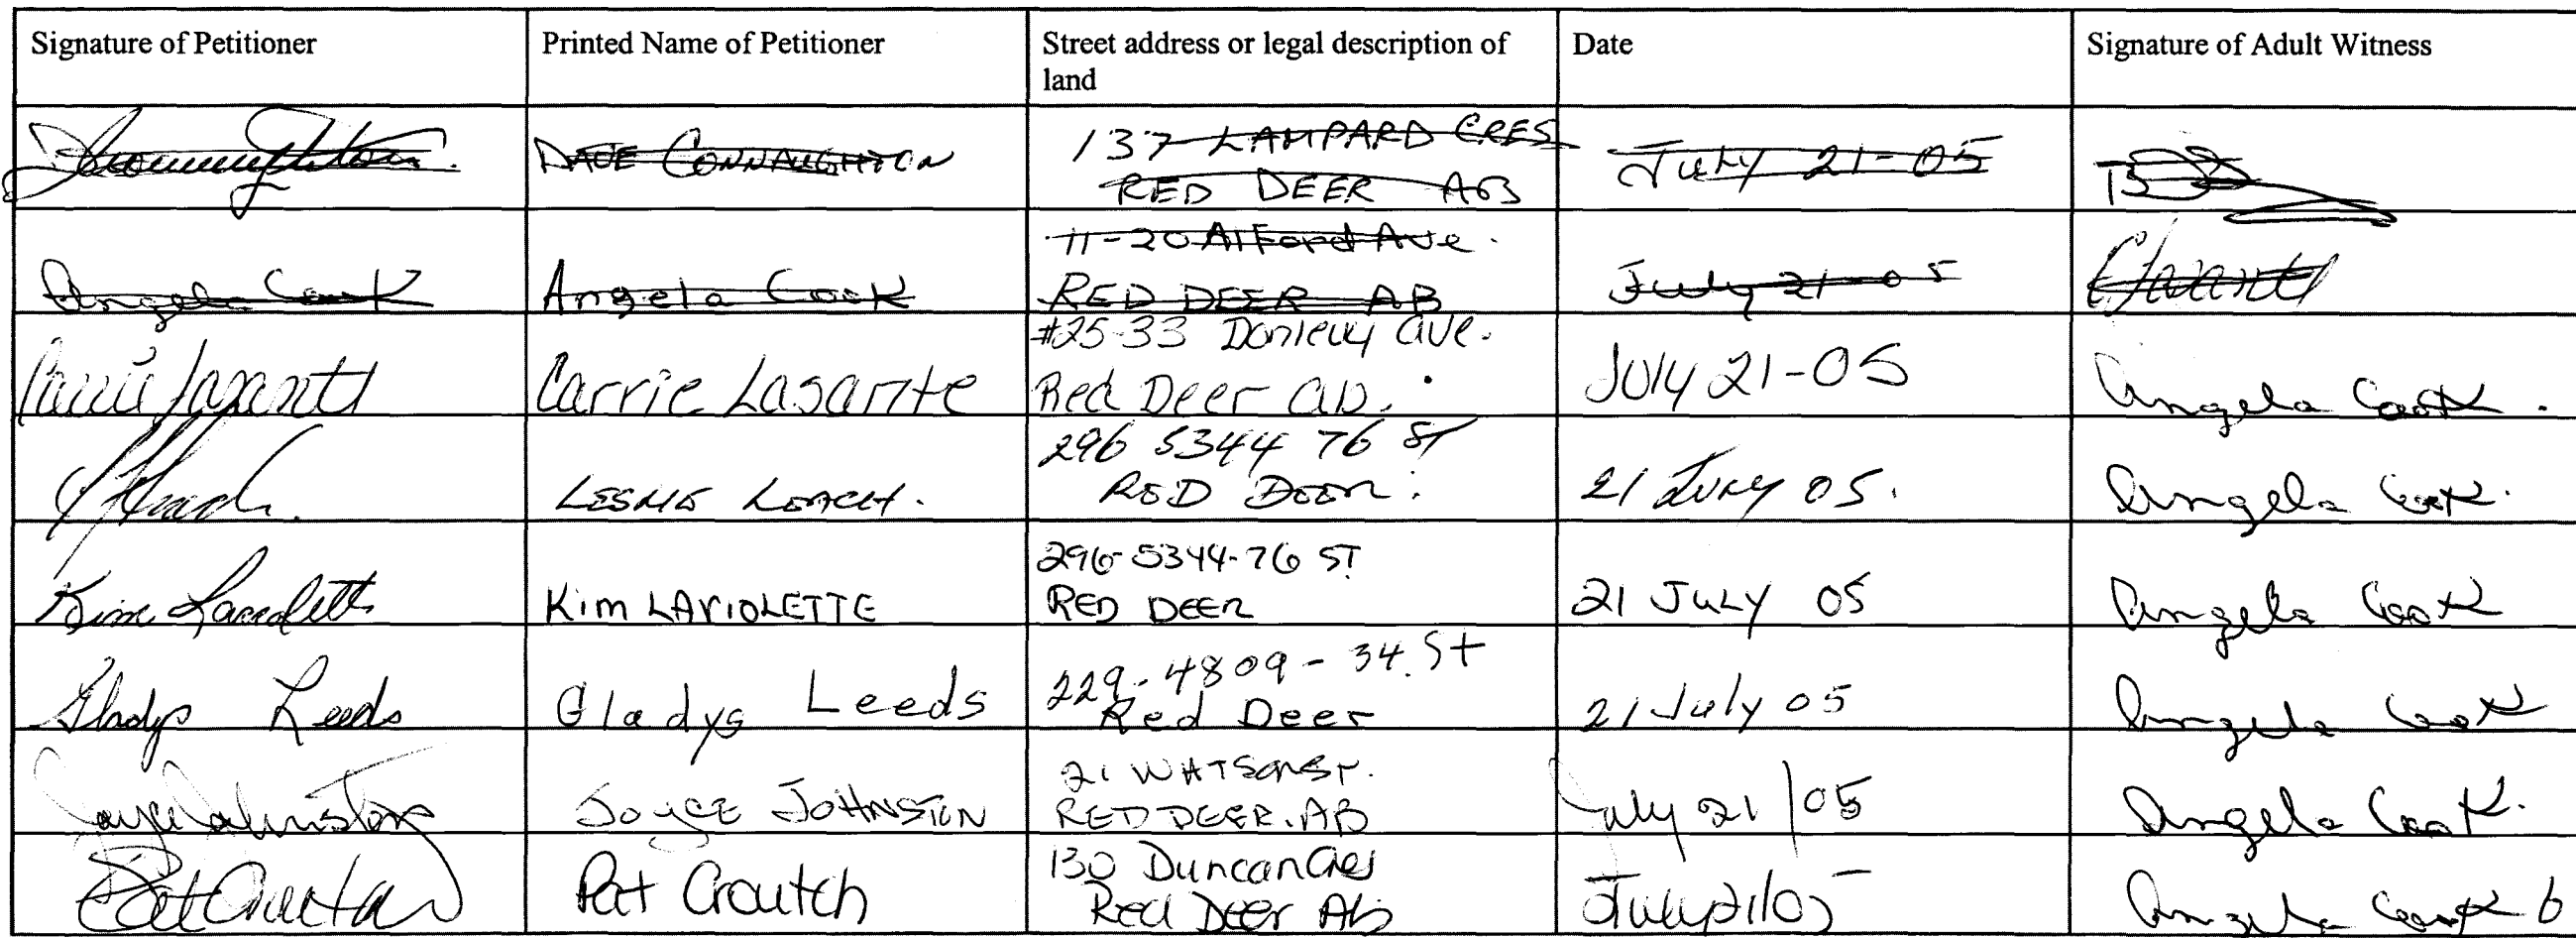 Signature of Petitioner
Printed Name of Petitioner
Street address or legal description of
land
Date
Signature of Adult Witness
DAVE CONNAUGHTON
137 LAMPARD CRES
RED DEER AB
July 21-05
Angela Cook
Angela Cook
11-20 Alford Ave.
RED DEER AB
July 21-05
Carrie Lasante
Carrie Lasante
#25-33 Donlevy ave.
Red Deer ab.
JUly 21-05
Angela Cook.
LESLIE LEACH.
296 5344 76 ST
RED DEER.
21 JULY 05.
Angela Cook.
Kim Laviolette
Kim LAVIOLETTE
296-5344-76 ST
RED DEER
21 JULY 05
Angela Cook
Gladys Leeds
Gladys Leeds
229-4809-34.St
Red Deer
21 July 05
Angela Cook
Joyce Johnston
JOYCE JOHNSTON
21 WATSON ST.
RED DEER.AB
July 21/05
Angela Cook.
Pat Croutch
Pat Croutch
130 Duncan Cres
Red Deer Ab
July 21/05
Angela Cook 6